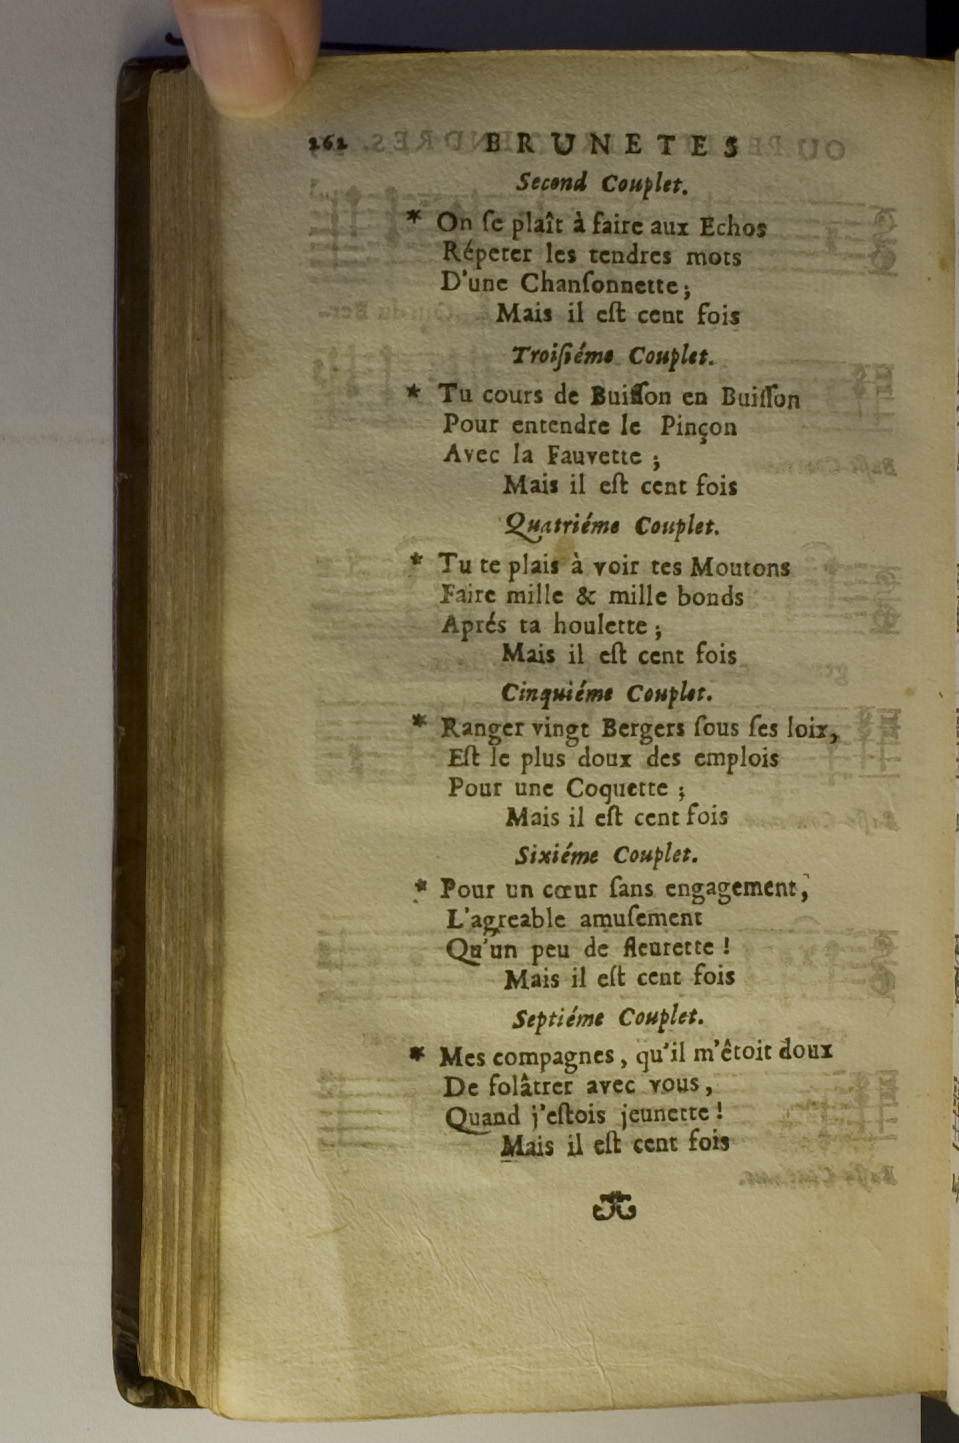 262 BRUNETES
Second Couplet.
* On ſe plaît à faire aux Echos
Répeter les tendres mots
D'une Chanſonnette ;
Mais il eſt cent fois
Troiſiéme Couplet.
* Tu cours de Buiſſon en Buiſſon
Pour entendre le Pinçon
Avec la Fauvette ;
Mais il eſt cent fois
Quatriéme Couplet.
* Tu te plais à voir tes Moutons
Faire mille & mille bonds
Aprés ta houlette ;
Mais il eſt cent fois
Cinquiéme Couplet.
* Ranger vingt Bergers ſous ſes loix,
Eſt le plus doux des emplois
Pour une Coquette ;
Mais il eſt cent fois
Sixiéme Couplet.
* Pour un cœur ſans engagement,
L'agreable amuſement
Qu'un peu de fleurette !
Mais il eſt cent fois
Septiéme Couplet.
* Mes compagnes, qu'il m'êtoit doux
De folâtrer avec vous,
Quand j'eſtois jeunette !
Mais il eſt cent fois